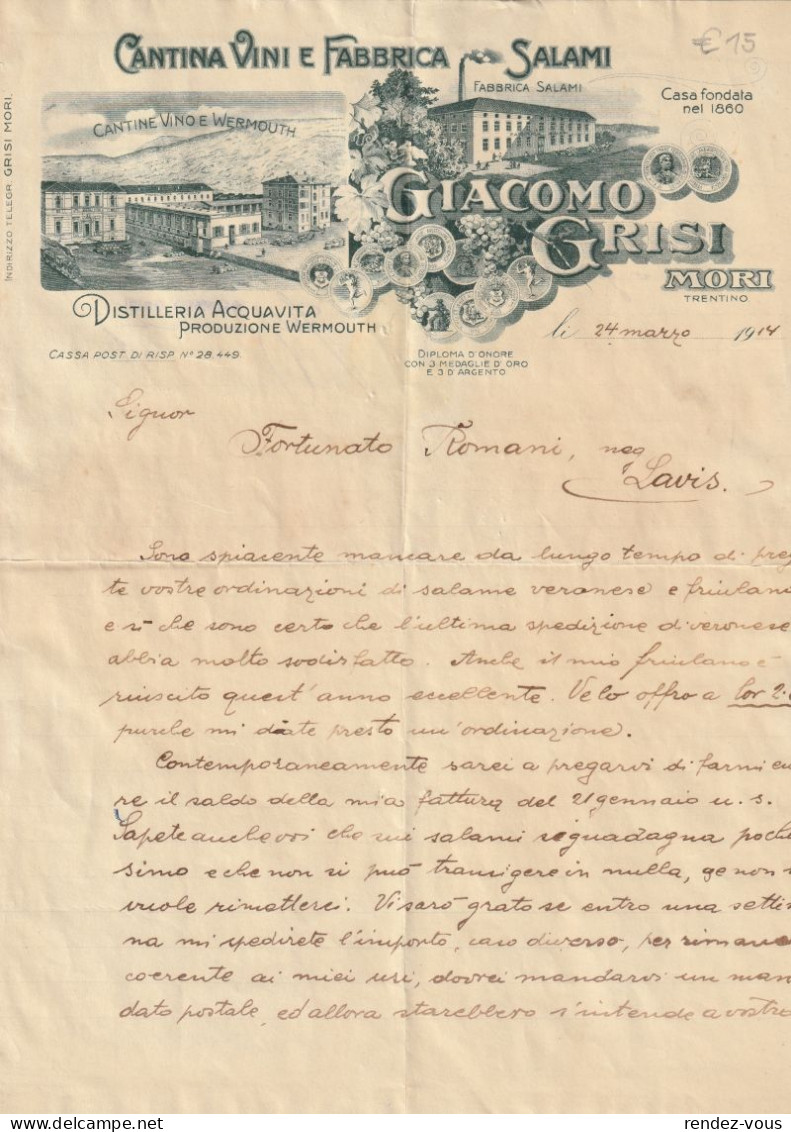 € 15
CANTINA VINI E FABBRICA SALAMI
FABBRICA SALAMI
Casa fondata
nel 1860
CANTINE VINO E WERMOUTH
INDIRIZZO TELEGR. GRISI MORI.
GIACOMO
GRISI
MORI
TRENTINO
DISTILLERIA ACQUAVITA
PRODUZIONE WERMOUTH
li 24 marzo 1914
CASSA POST. DI RISP. Nº 28.449.
DIPLOMA D'ONORE
CON 3 MEDAGLIE D'ORO
E 3 D'ARGENTO
Signor
Fortunato Romani, neg
Lavis.
Sono spiacente mancare da lungo tempo di preg
te vostre ordinazioni di salame veronese e friulano
e sì che sono certo che l'ultima spedizione di veronese
abbia molto sodisfatto. Anche il mio friulano è
riuscito quest'anno eccellente. Ve lo offro a Cor 2.
purche mi diate presto un'ordinazione.
Contemporaneamente sarei a pregarvi di farmi
re il saldo della mia fattura del 21 gennaio u. s.
Sapete anche voi che sui salami si guadagna poch
simo e che non si può transigere in nulla, se non
vuole rimetterci. Vi sarò grato se entro una setti
na mi spedirete l'importo, caso diverso, per rimane
coerente ai miei usi, dovrei mandarvi un man
dato postale, ed allora starebbero s'intende a vostro
rendez-vous